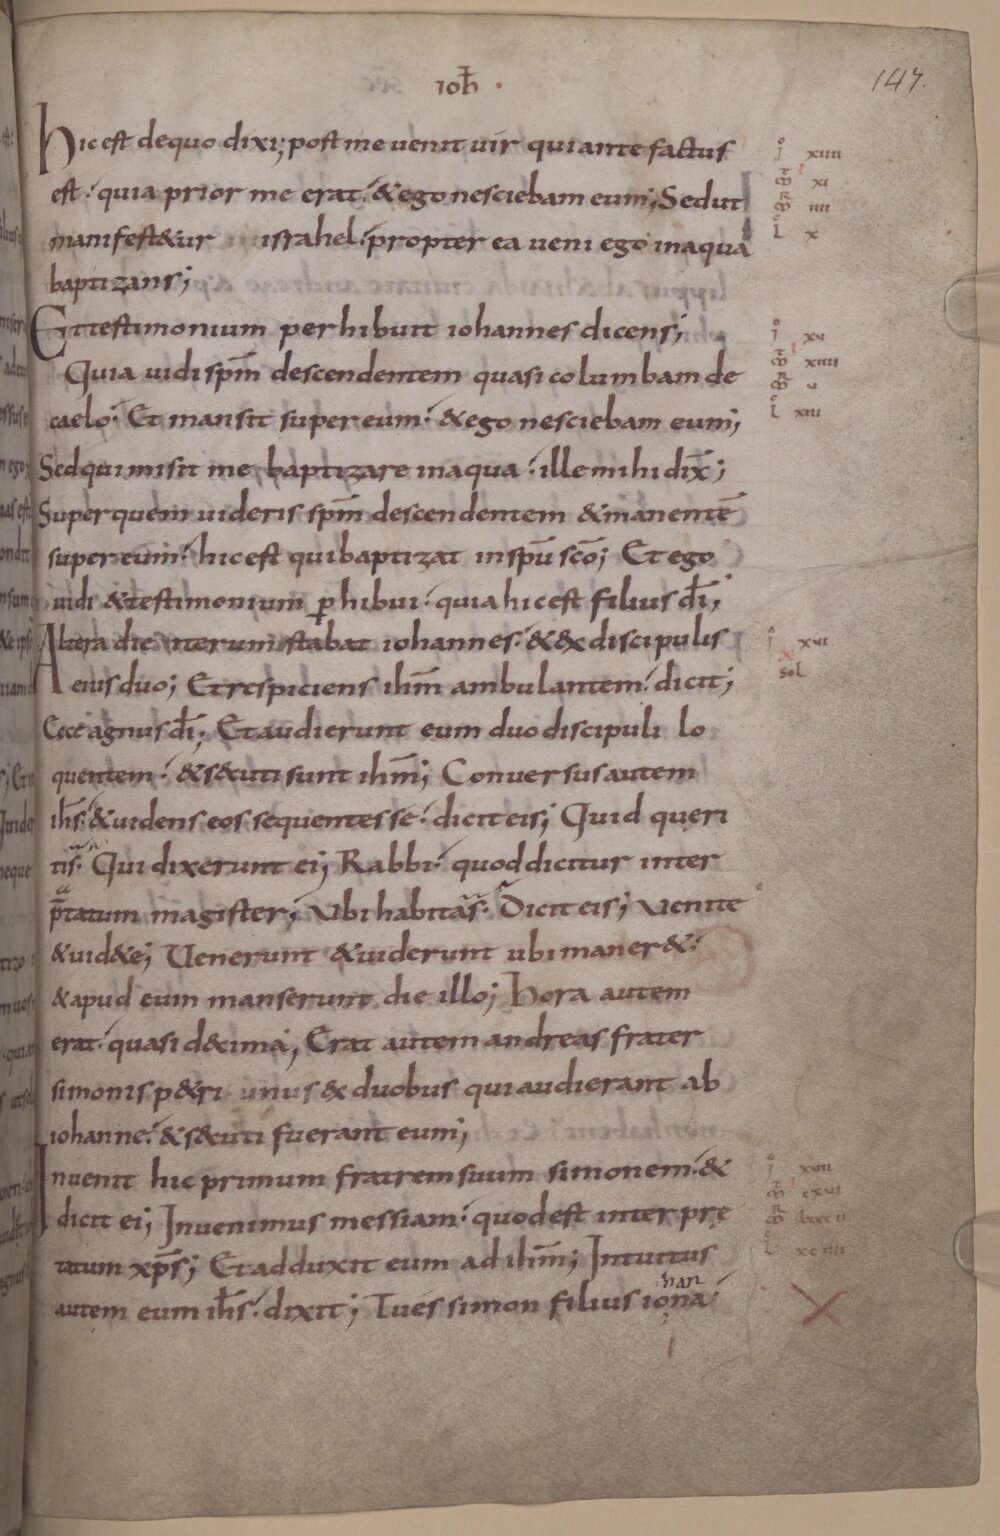 ioħ ·
147.
Hic est de quo dixi; post me uenit uir qui ante factus
est · quia prior me erat · & ego nesciebam eum; Sed ut
manifest&ur israhel · propter ea ueni ego in aqua
baptizans;
Et testimonium perhibuit iohannes dicens;
Quia uidi sp̄m descendentem quasi columbam de
caelo · Et mansit super eum · & ego nesciebam eum;
Sed qui misit me baptizare in aqua · ille mihi dix̄;
Super quem uideris sp̄m descendentem & manentē
super eum · hic est qui baptizat in spū scō; Et ego
uidi & testimonium ꝑhibui · quia hic est filius dī;
Altera die iterum stabat iohannes · & ex discipulis
eius duo; Et respiciens ihm̄ ambulantem · dicit;
Ecce agnus dī; Et audierunt eum duo discipuli lo
quentem · & s&cuti sunt ihm̄; Conuersus autem
ihs̄ · & uidens eos sequentes se · dicit eis; Quid queri
tis · Qui dixerunt ei; Rabbi · quod dicitur inter
p̄tatum magister; Vbi habitas · Dicit eis; Venite
& uid&e; Venerunt & uiderunt ubi maner& ·
& apud eum manserunt die illo; Hora autem
erat · quasi d&cima; Erat autem andreas frater
simonis p&ri unus ex duobus qui audierant ab
iohanne · & s&cuti fuerant eum;
Inuenit hic primum fratrem suum simonem · &
dicit ei; Inuenimus messiam · quod est interprę
tatum xp̄s; Et adduxit eum ad ihm̄; Intuitus
han
autem eum ihs̄ · dixit; Tu es simon filius iona
xiiii
xi
iiii
x
xv
xiiii
v
xiii
xvi
sol